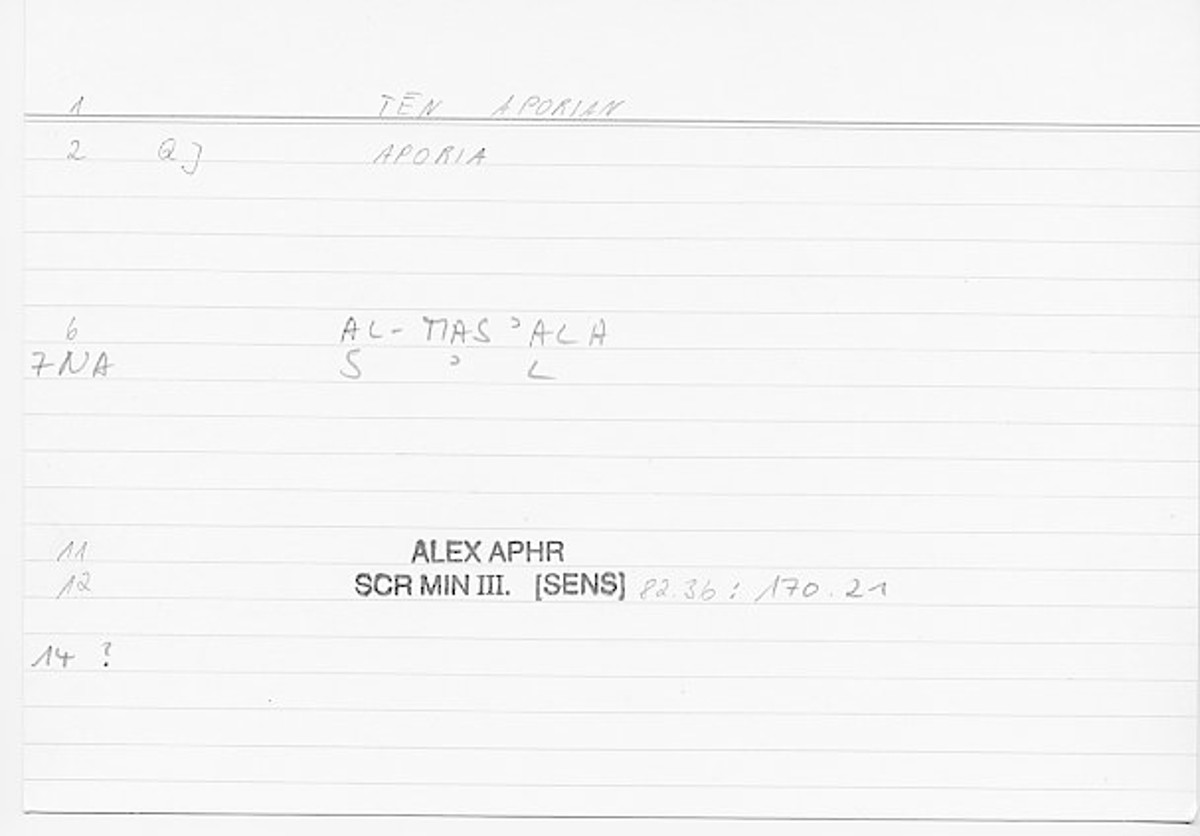 1 TĒN APORIAN
2 Q] APORIA
6 AL-MASʾALA
7NA S ʾ L
11 ALEX APHR
12 SCR MIN III. [SENS] 82.36 : 170.21
14 ?